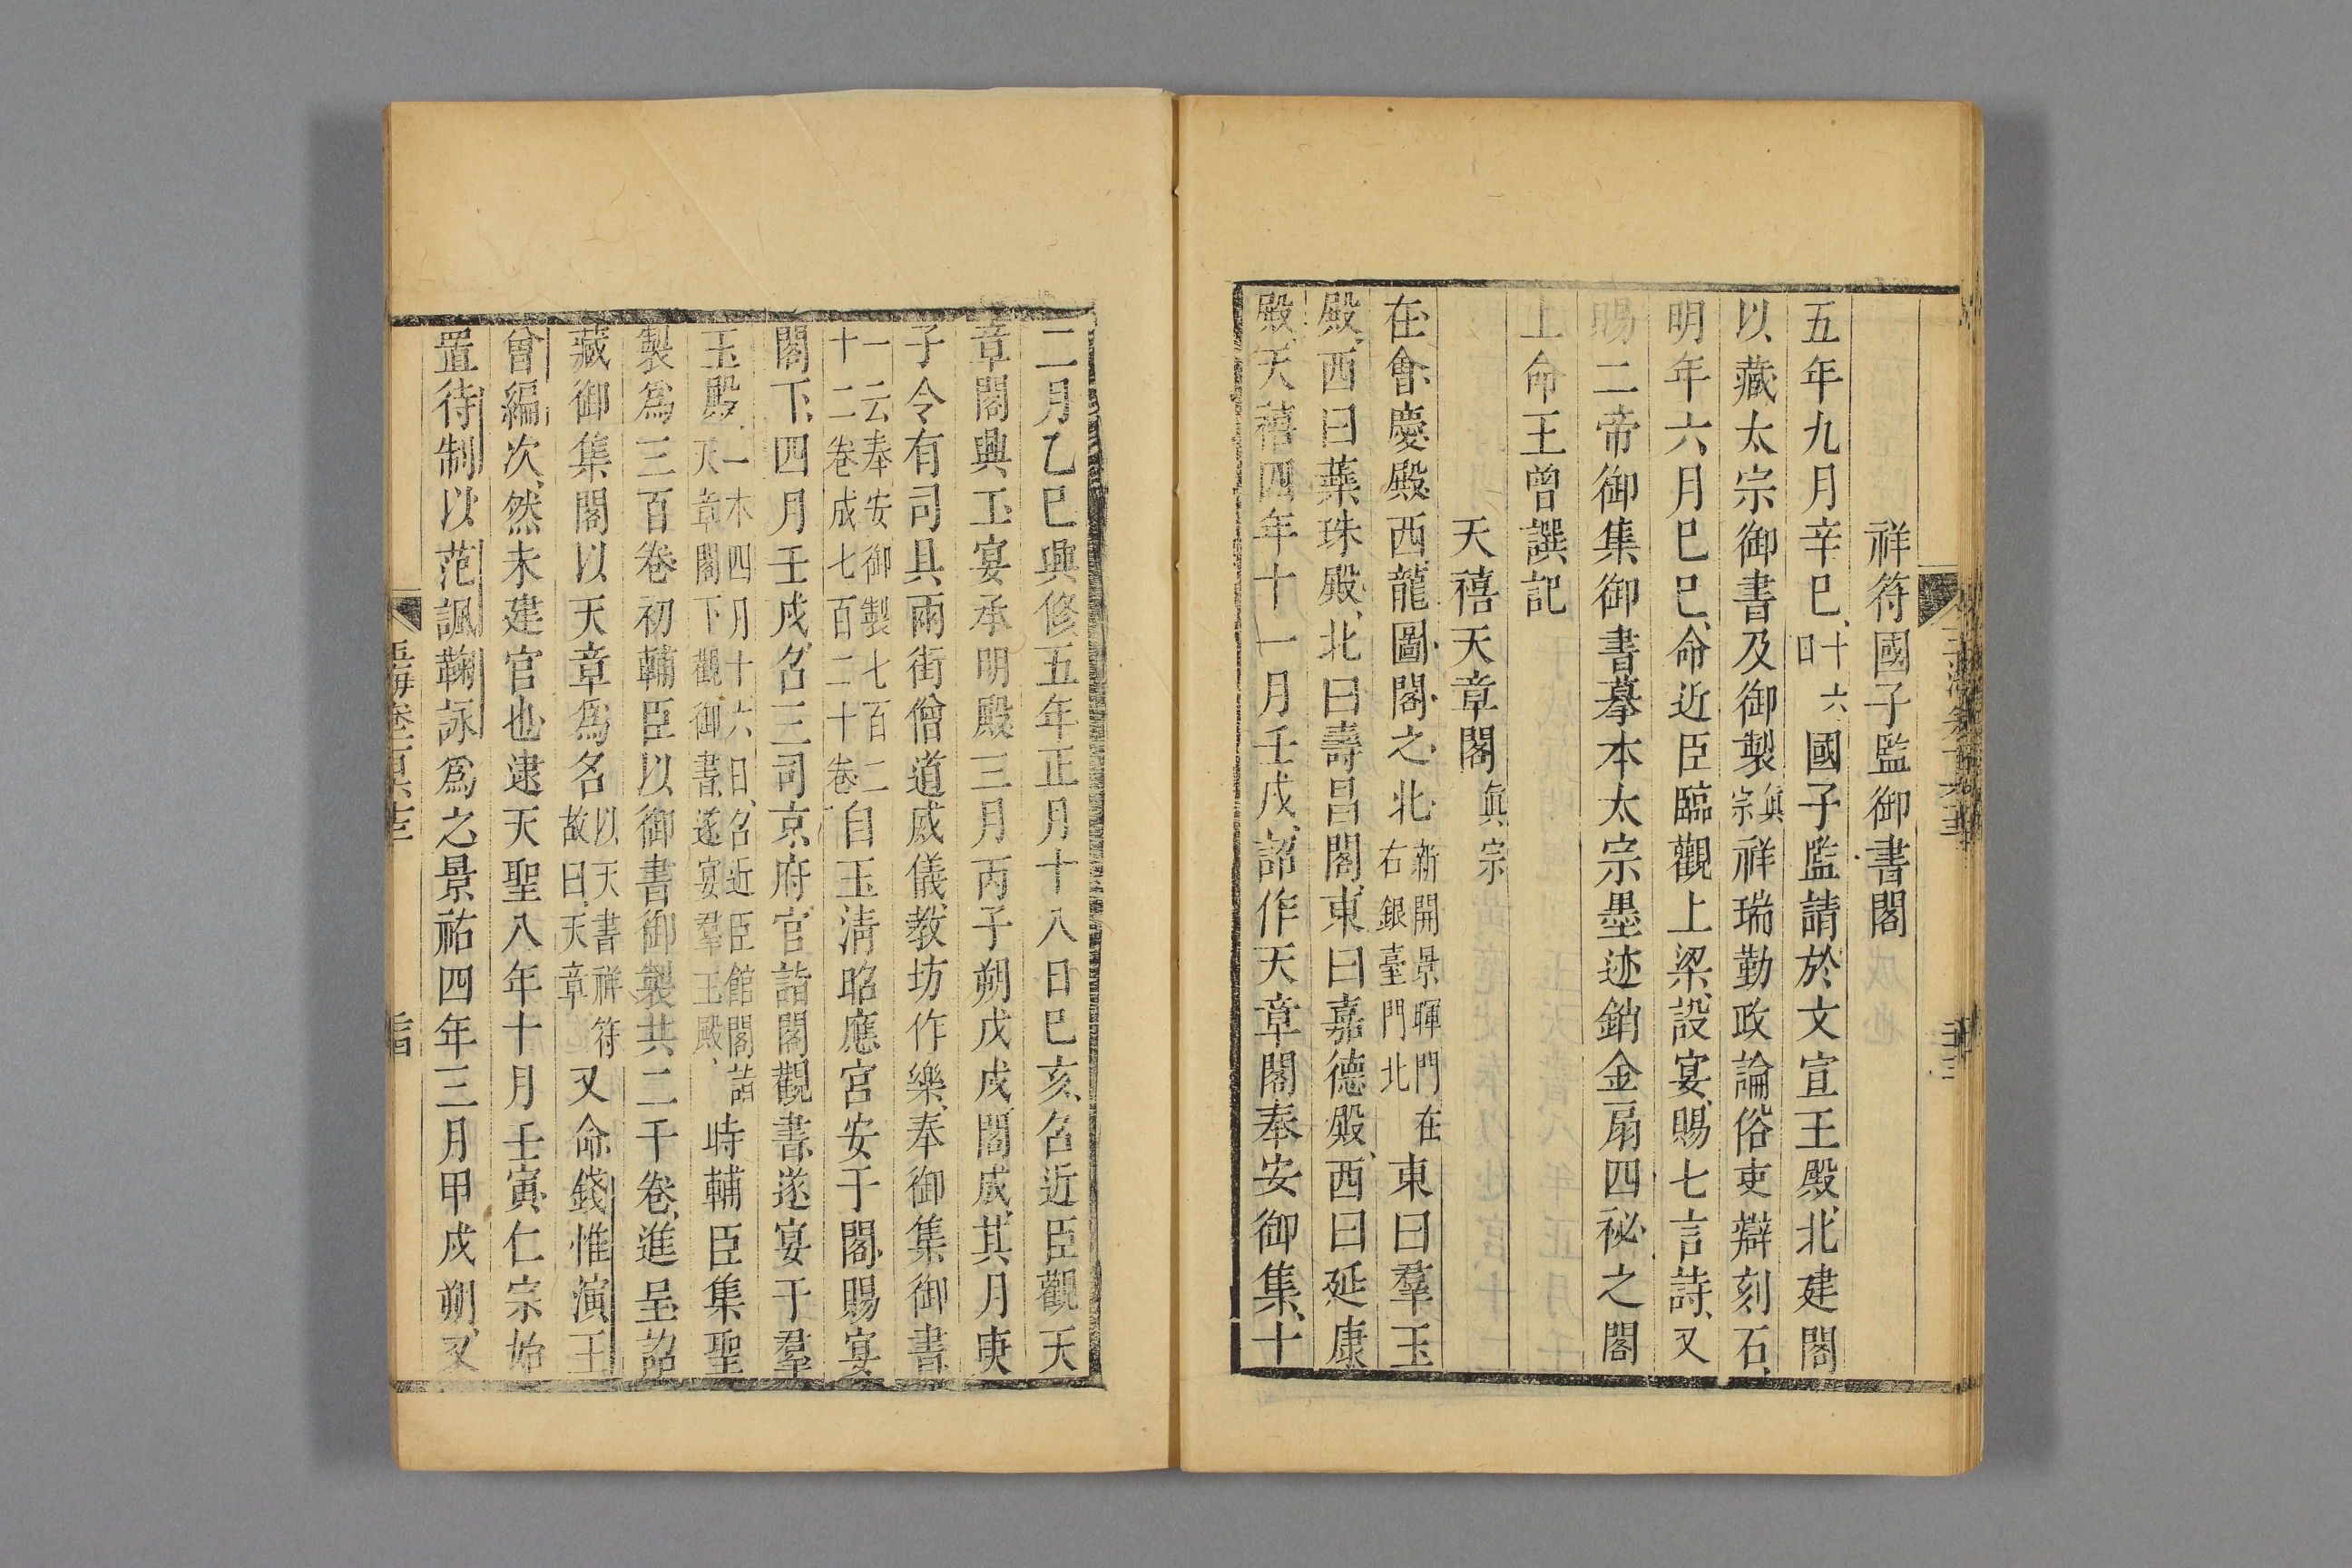 祥符國子監御書閣
五年九月辛巳、十六日、國子監請於文宣王殿北建閣
以藏太宗御書及御製真宗祥瑞勤政論俗吏辯刻石、
明年六月巳巳、命近臣臨觀上梁、設宴、賜七言詩、又
賜二帝御集御書摹本太宗墨迹銷金扇四祕之閣
上命王曾譔記
天禧天章閣真宗
在會慶殿西龍圖閣之北新開景暉門在右銀臺門北東曰羣玉
殿、西曰蘂珠殿、北曰壽昌閣、東曰嘉德殿、西曰延康
殿、天禧四年十一月壬戌、詔作天章閣奉安御集、十
二月乙巳興修五年正月十八日巳亥、名近臣觀天
章閣興工宴承明殿三月丙子朔戊戌、閣成、其月庚
子令有司具兩街僧道威儀、教坊作樂、奉御集御書
一云奉安御製七百二十二卷成七百二十卷自玉清昭應宮安于閣、賜宴
閣下、四月壬戌、名三司京府官詣閣觀書、遂宴于羣
玉殿、一本四月十六日、名近臣館閣詣天章閣下觀御書、遂宴羣玉殿、時輔臣集聖
製爲三百卷初輔臣以御書御製共二千卷、進呈、詔
藏御集閣以天章爲名以天書祥符故曰天章又命錢惟演王
曾編次、然未建官也逮天聖八年十月壬寅仁宗始
置待制以范諷鞠詠爲之景祐四年三月甲戌朔、又